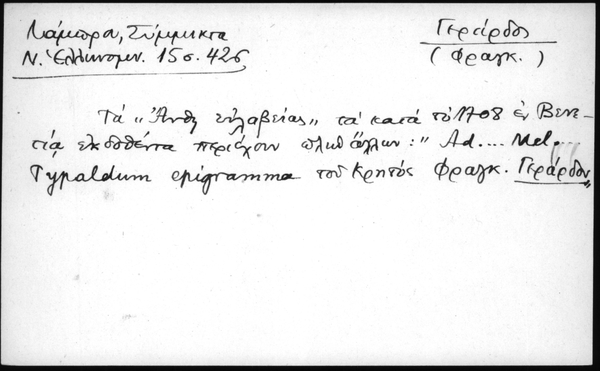 Λάμπρα, Σύμμικτα
Ν. Ἑλληνομν. 15 σ. 426
Γεράρδος
(Φραγκ.)
Τὰ "Ἄνθη εὐλαβείας" τὰ κατὰ τὸ 1708 ἐν Βενε-
τίᾳ ἐκδοθέντα περιέχουν πλὴν ἄλλων: "Ad.... Mel.
Typaldum epigramma τοῦ Κρητὸς Φραγκ. Γεράρδου"